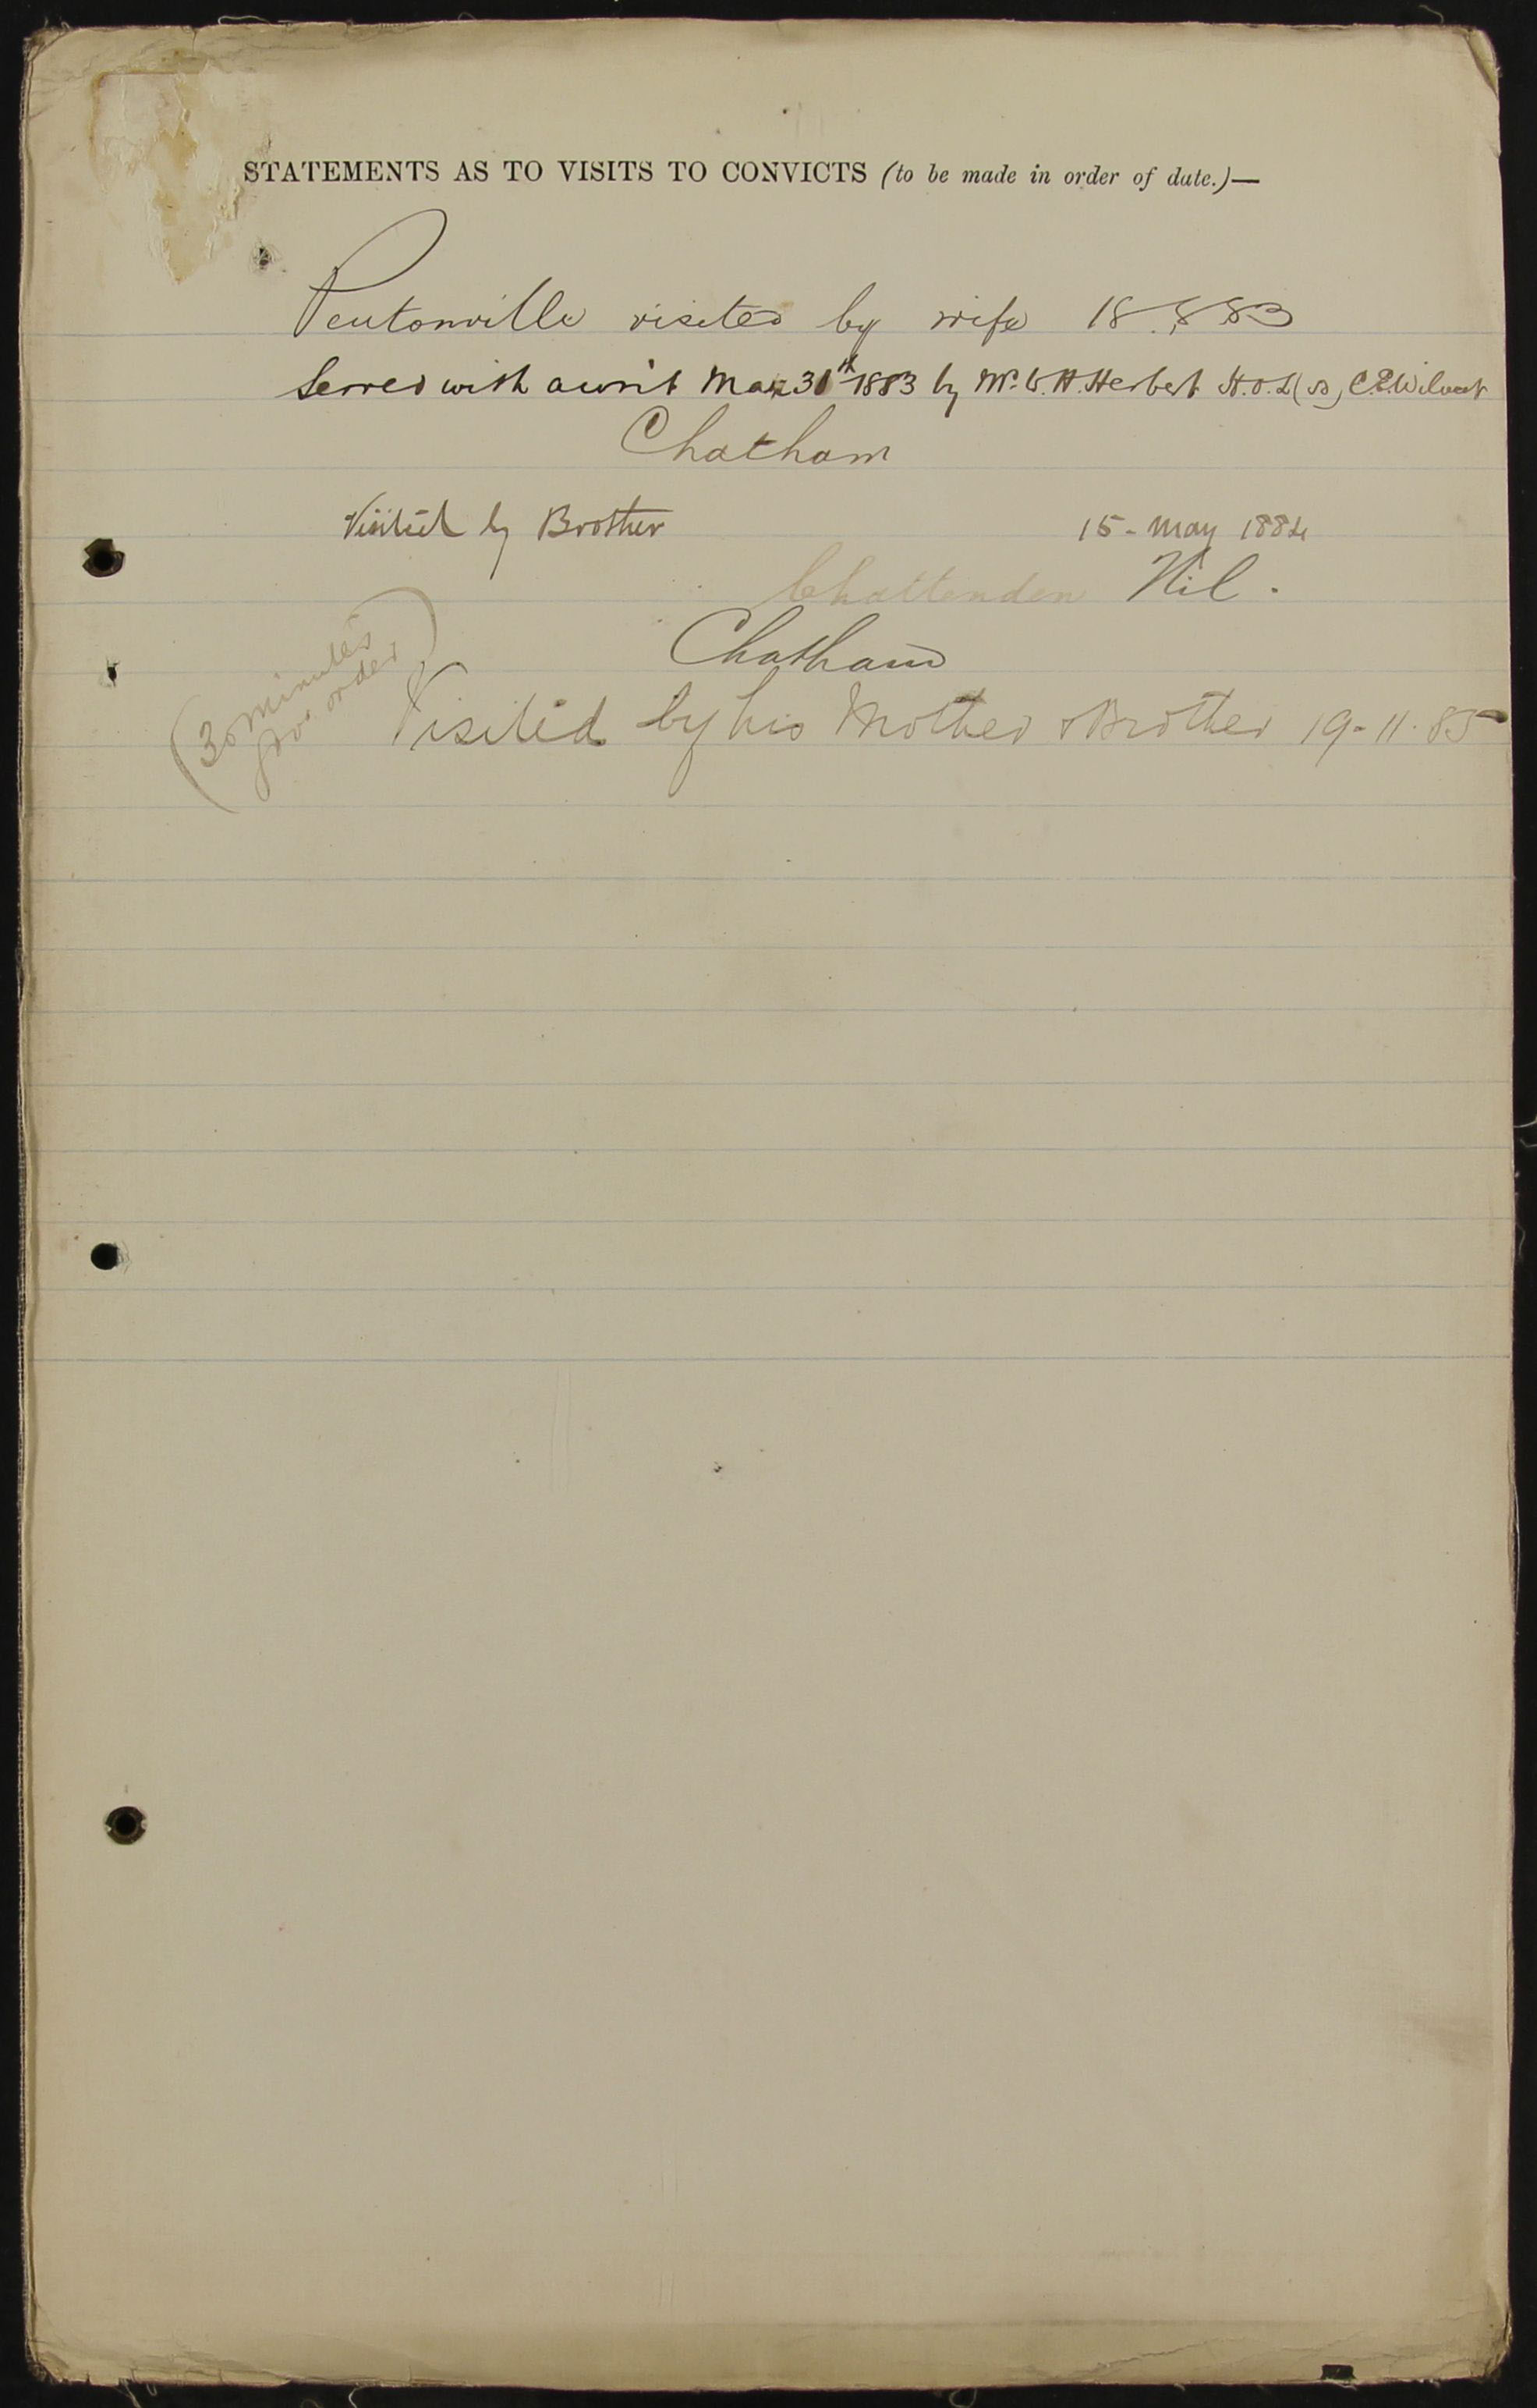 STATEMENTS AS TO VISITS TO CONVICTS (to be made in order of date.)—
Pentonville visited by wife 18.8.83
Served with a writ May 30th 1883 by Mr. W. H. Herbert H.O.L
Chatham
Visited by Brother 15 - May 1884
Chattenden Nil.
Chatham
(30 minutes
Gov. order)
Visited by his Mother & Brother 19-11-85